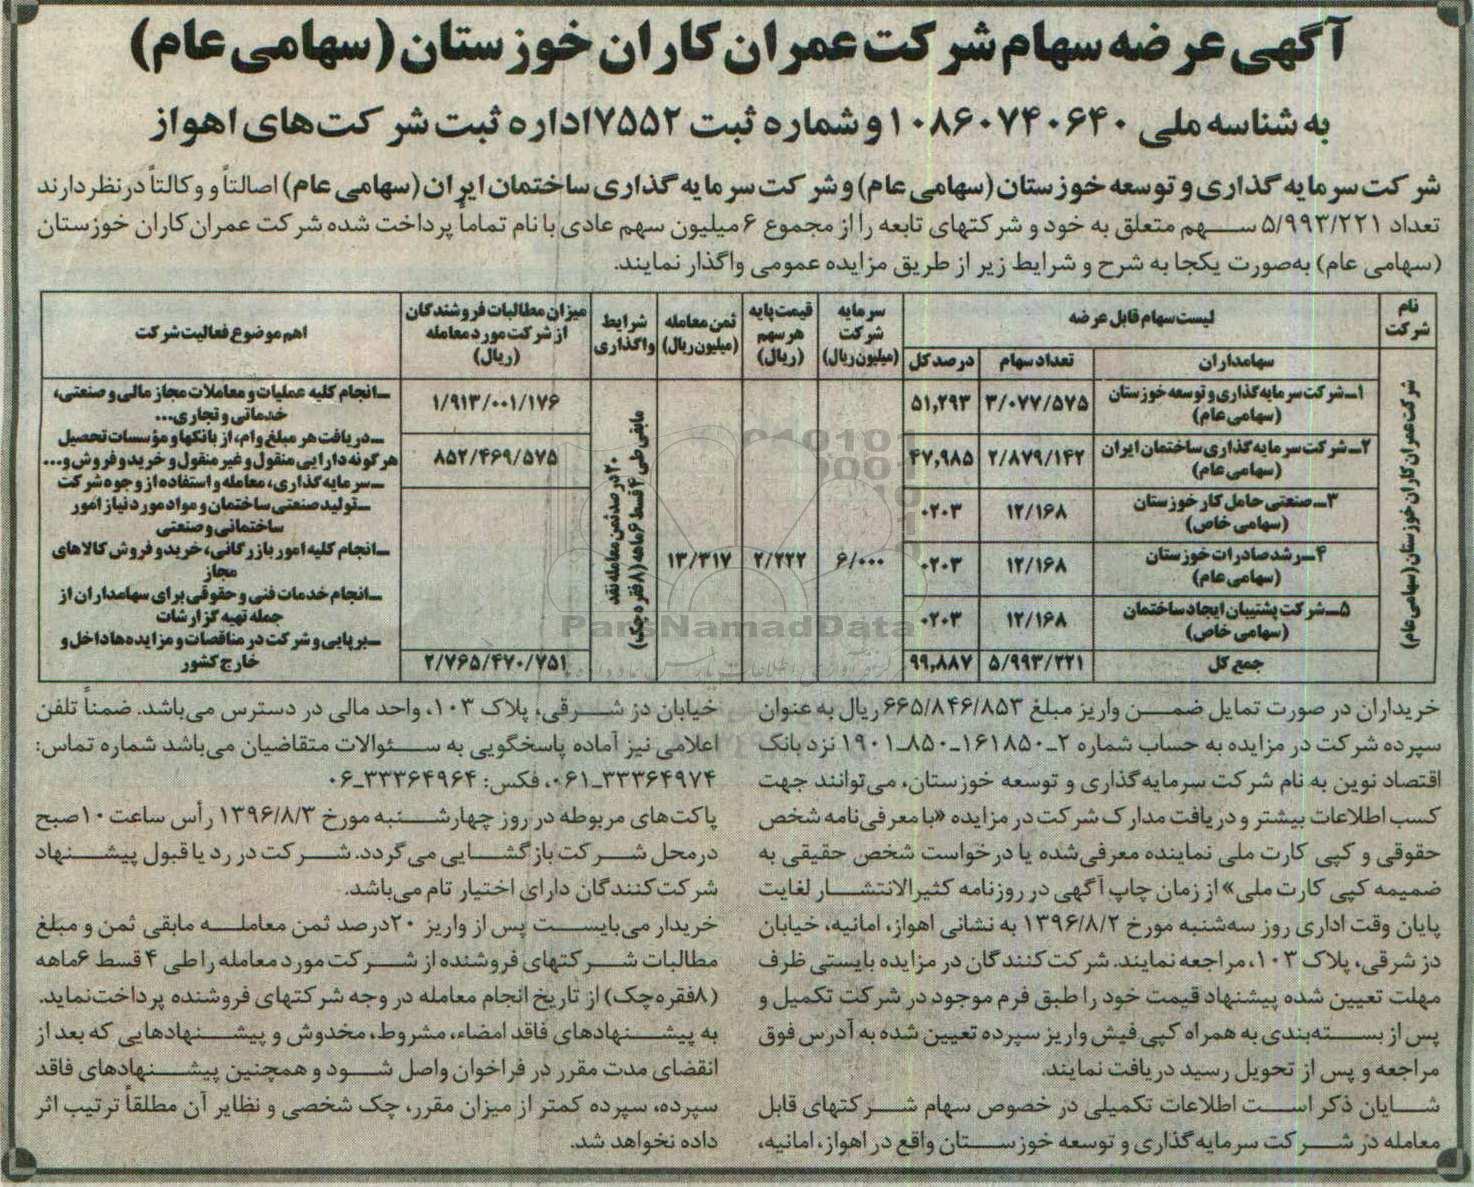 آگهی عرضه سهام شرکت عمران کاران خوزستان (سهامی عام)
به شناسه ملی ۱۰۸۶۰۷۴۰۶۴۰ و شماره ثبت ۷۵۵۲ اداره ثبت شرکت‌های اهواز
شرکت سرمایه گذاری و توسعه خوزستان (سهامی عام) و شرکت سرمایه گذاری ساختمان ایران (سهامی عام) اصالتاً و وکالتاً در نظر دارند
تعداد ۵/۹۹۳/۲۲۱ سهم متعلق به خود و شرکتهای تابعه را از مجموع ۶ میلیون سهم عادی با نام تماماً پرداخت شده شرکت عمران کاران خوزستان
(سهامی عام) به‌صورت یکجا به شرح و شرایط زیر از طریق مزایده عمومی واگذار نمایند.
نام شرکت
لیست سهام قابل عرضه
سرمایه شرکت (میلیون ریال)
قیمت پایه هر سهم (ریال)
ثمن معامله (میلیون ریال)
شرایط واگذاری
میزان مطالبات فروشندگان از شرکت مورد معامله (ریال)
اهم موضوع فعالیت شرکت
سهامداران
تعداد سهام
درصد کل
شرکت عمران کاران خوزستان (سهامی عام)
۱ـ شرکت سرمایه گذاری و توسعه خوزستان (سهامی عام)
۳/۰۷۷/۵۷۵
۵۱,۲۹۳
۱/۹۱۳/۰۰۱/۱۷۶
۲ـ شرکت سرمایه گذاری ساختمان ایران (سهامی عام)
۲/۸۷۹/۱۴۲
۴۷,۹۸۵
۸۵۲/۴۶۹/۵۷۵
۳ـ صنعتی حامل کار خوزستان (سهامی خاص)
۱۲/۱۶۸
۰۲۰۳
۴ـ رشد صادرات خوزستان (سهامی عام)
۱۲/۱۶۸
۰۲۰۳
۵ـ شرکت پشتیبان ایجاد ساختمان (سهامی خاص)
۱۲/۱۶۸
۰۲۰۳
جمع کل
۵/۹۹۳/۲۲۱
۹۹,۸۸۷
۲/۷۶۵/۴۷۰/۷۵۱
۶/۰۰۰
۲/۲۲۲
۱۳/۳۱۷
۲۰ درصد ثمن معامله نقد
مابقی طی ۴ قسط ۶ ماهه (۸ فقره چک)
ـ انجام کلیه عملیات و معاملات مجاز مالی و صنعتی،
خدماتی و تجاری...
ـ دریافت هر مبلغ وام، از بانکها و مؤسسات تحصیل
هر گونه دارایی منقول و غیر منقول و خرید و فروش و...
ـ سرمایه گذاری، معامله و استفاده از وجوه شرکت
ـ تولید صنعتی ساختمان و مواد مورد نیاز امور
ساختمانی و صنعتی
ـ انجام کلیه امور بازرگانی، خرید و فروش کالاهای
مجاز
ـ انجام خدمات فنی و حقوقی برای سهامداران از
جمله تهیه گزارشات
ـ برپایی و شرکت در مناقصات و مزایده‌ها داخل و
خارج کشور
ParsNamadData
خریداران در صورت تمایل ضمن واریز مبلغ ۶۶۵/۸۴۶/۸۵۳ ریال به عنوان
سپرده شرکت در مزایده به حساب شماره ۲ـ۱۶۱۸۵۰ـ۸۵۰ـ۱۹۰۱ نزد بانک
اقتصاد نوین به نام شرکت سرمایه گذاری و توسعه خوزستان، می‌توانند جهت
کسب اطلاعات بیشتر و دریافت مدارک شرکت در مزایده «با معرفی‌نامه شخص
حقوقی و کپی کارت ملی نماینده معرفی‌شده یا درخواست شخص حقیقی به
ضمیمه کپی کارت ملی» از زمان چاپ آگهی در روزنامه کثیرالانتشار لغایت
پایان وقت اداری روز سه‌شنبه مورخ ۱۳۹۶/۸/۲ به نشانی اهواز، امانیه، خیابان
دز شرقی، پلاک ۱۰۳، مراجعه نمایند. شرکت‌کنندگان در مزایده بایستی ظرف
مهلت تعیین شده پیشنهاد قیمت خود را طبق فرم موجود در شرکت تکمیل و
پس از بسته‌بندی به همراه کپی فیش واریز سپرده تعیین شده به آدرس فوق
مراجعه و پس از تحویل رسید دریافت نمایند.
شایان ذکر است اطلاعات تکمیلی در خصوص سهام شرکتهای قابل
معامله در شرکت سرمایه گذاری و توسعه خوزستان واقع در اهواز، امانیه،
خیابان دز شرقی، پلاک ۱۰۳، واحد مالی در دسترس می‌باشد. ضمناً تلفن
اعلامی نیز آماده پاسخگویی به سئوالات متقاضیان می‌باشد شماره تماس:
۳۳۳۶۴۹۷۴ـ۰۶۱، فکس: ۳۳۳۶۴۹۶۴ـ۰۶
پاکت‌های مربوطه در روز چهارشنبه مورخ ۱۳۹۶/۸/۳ رأس ساعت ۱۰ صبح
در محل شرکت بازگشایی می گردد. شرکت در رد یا قبول پیشنهاد
شرکت‌کنندگان دارای اختیار تام می‌باشد.
خریدار می‌بایست پس از واریز ۲۰درصد ثمن معامله مابقی ثمن و مبلغ
مطالبات شرکتهای فروشنده از شرکت مورد معامله را طی ۴ قسط ۶ماهه
(۸فقره‌چک) از تاریخ انجام معامله در وجه شرکتهای فروشنده پرداخت نماید.
به پیشنهادهای فاقد امضاء، مشروط، مخدوش و پیشنهادهایی که بعد از
انقضای مدت مقرر در فراخوان واصل شود و همچنین پیشنهادهای فاقد
سپرده، سپرده کمتر از میزان مقرر، چک شخصی و نظایر آن مطلقاً ترتیب اثر
داده نخواهد شد.